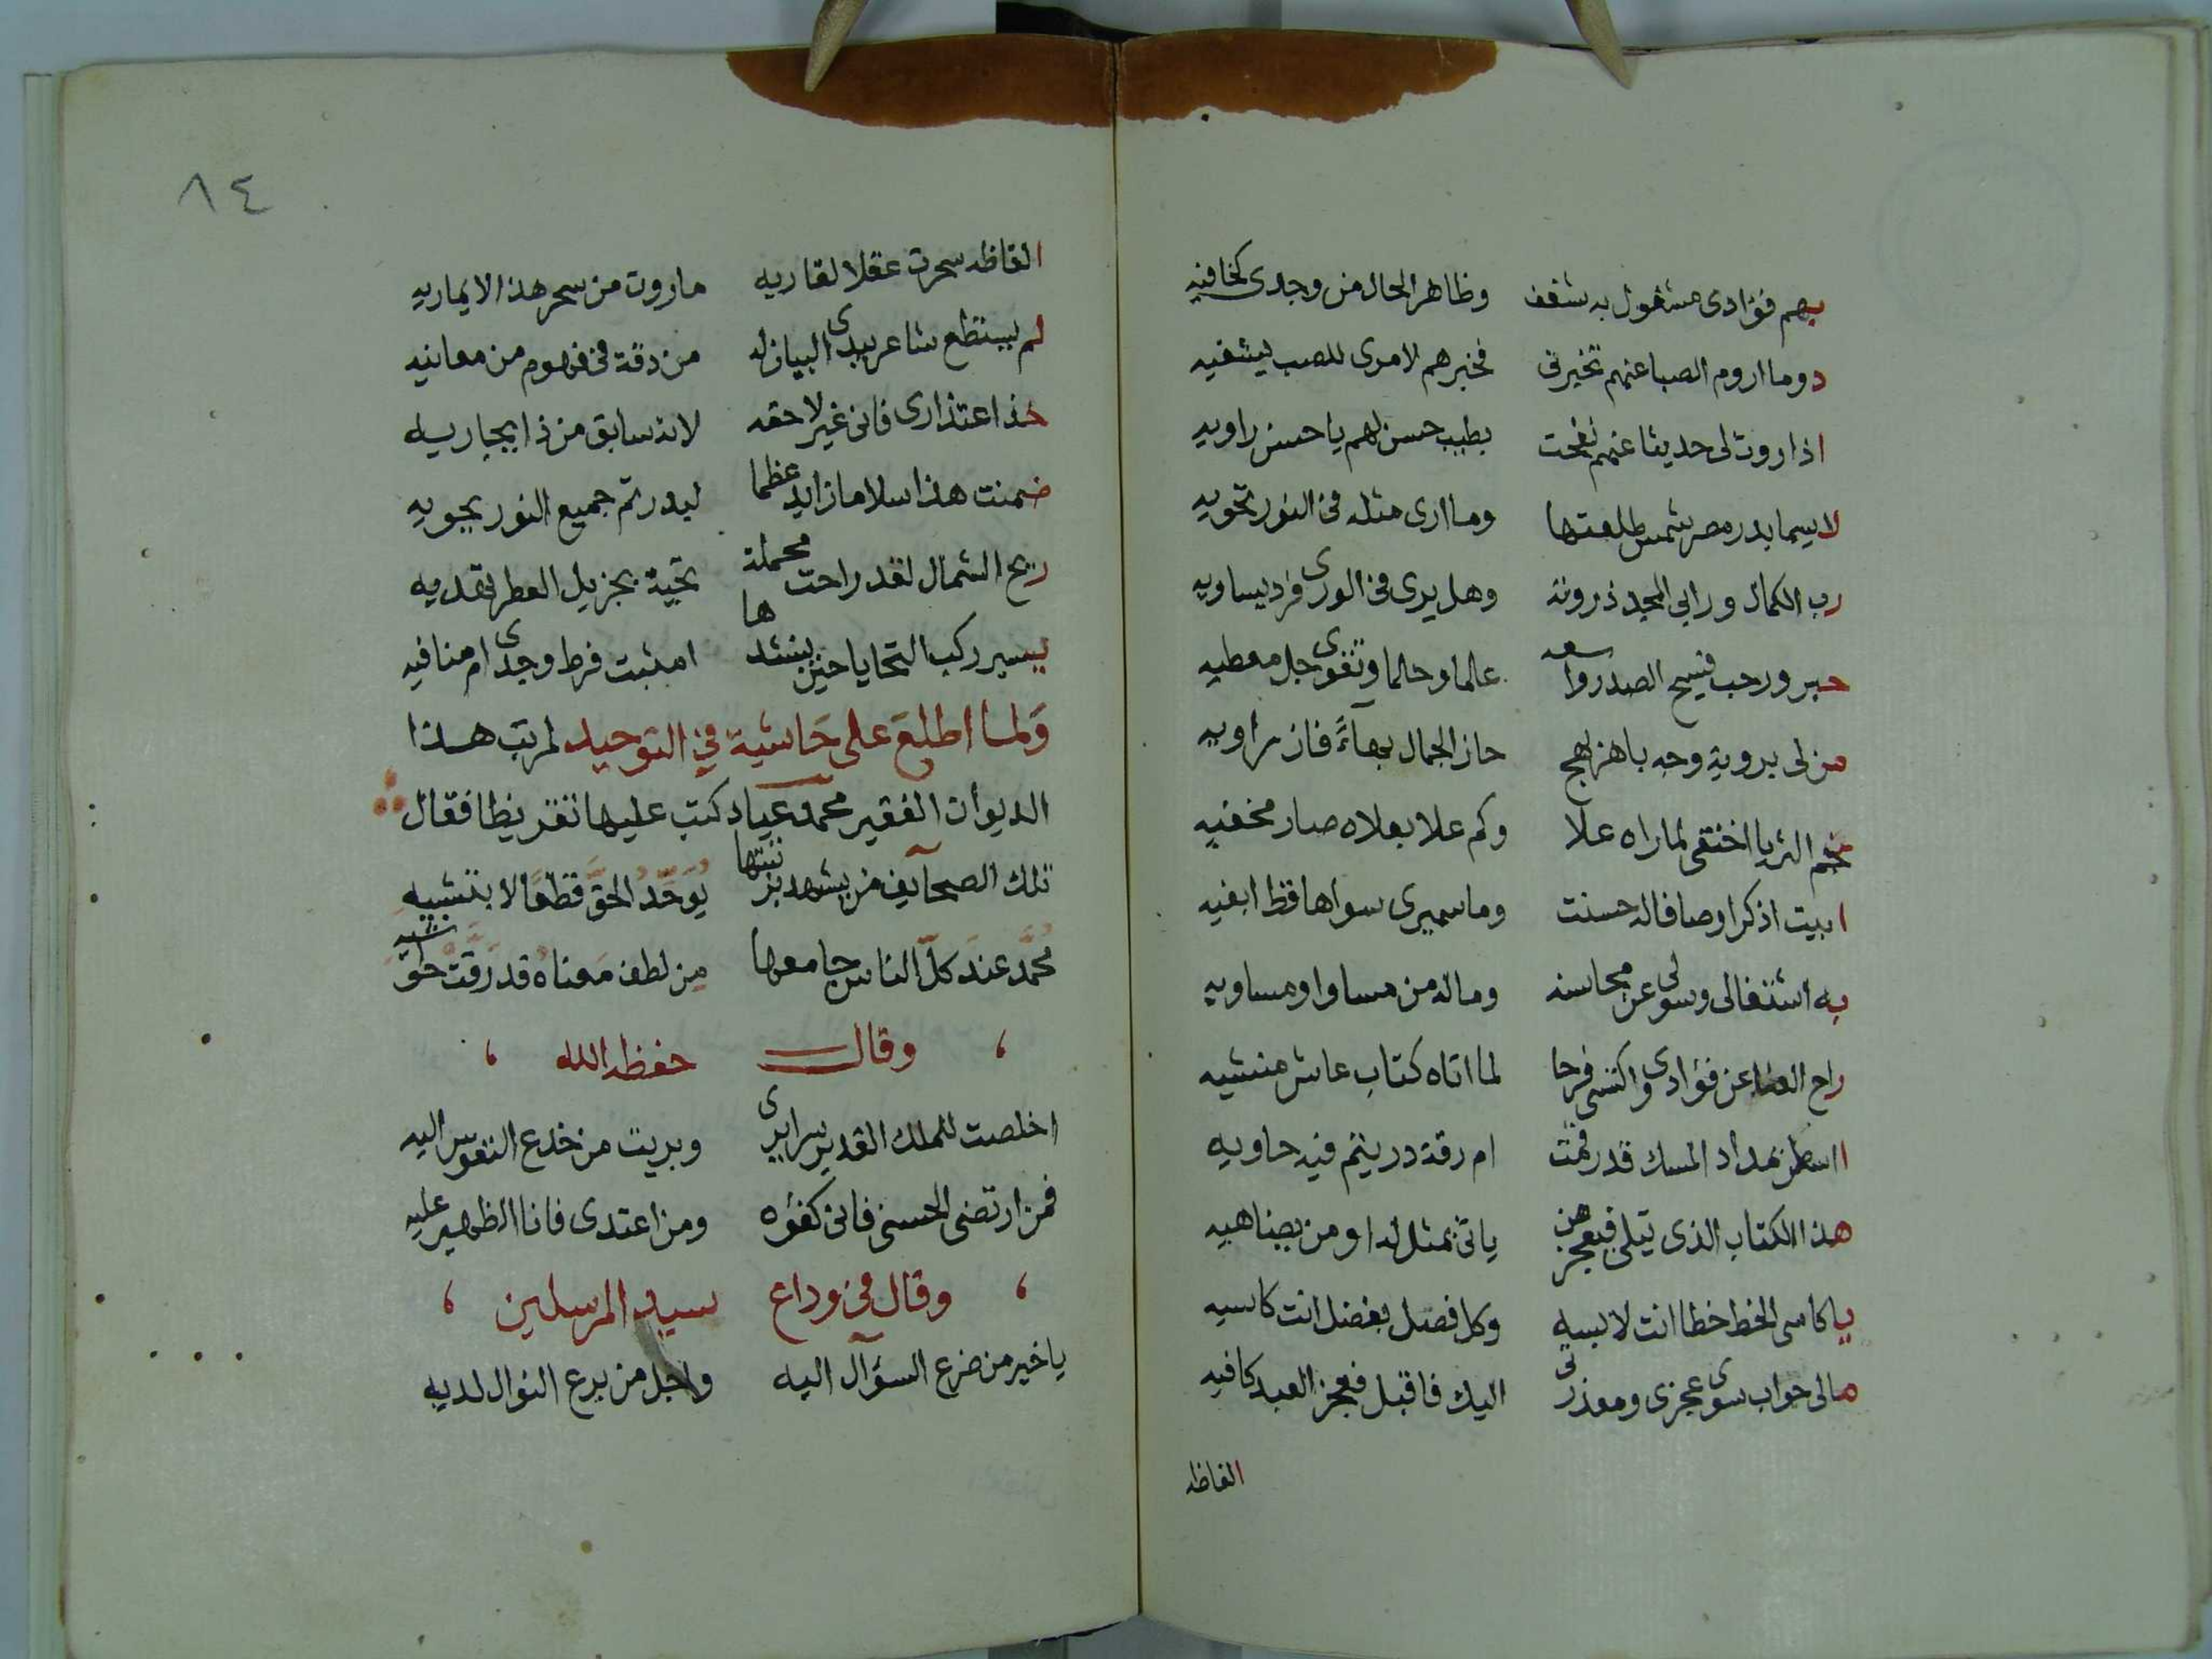 بهم فؤادى مشغول به شغف وظاهر الحال من وجدى كخافيه
دوما اروم الصبا عنهم تخبرنى فخبرهم لامرى للصب يشفيه
اذا روت لى حديثا عنهم نفحت بطيب حسن لهم يا حسن راويه
لاسيما بدر مصر شمس طلعتها وما ارى مثله فى النور تحويه
رب الكمال ورابى المجد ذروته وهل يرى فى الورى فرد يساويه
حبر ورحب فسيح الصدر واسعه علما وحلما وتقوى جل معطيه
من لى بروية وجه باهر بهج حاز الجمال بهآءً فاز راويه
نجم الثريا اختفى لما راه علا وكم علا بعلاه صار مخفيه
ابيت اذكر اوصافا له حسنت وما سميرى سواها قط ابغيه
به اشتغالى وسولى عن محاسنه وماله من مساوا ومساويه
راح العنا عن فؤادى واكتسى فرحا لما اتاه كتاب عاش منشيه
ااسطر بمداد المسك قد رقمت ام رقة در يتم فيه حاويه
هذا الكتاب الذى يتلى فيعجز من ياتى بمثل له او من يضاهيه
يا كاسى الخط خطا انت لابسه وكل فضل بفضل انت كاسيه
مالى جواب سوى عجزى ومعذرتى اليك فاقبل فعجز العبد كافيه
الفاظه
٨٤
الفاظه سحرت عقلا لقاريه ماروت من سحر هذا الايماريه
لم يستطع شاعر يبدى البيان له من دقة فى فهوم من معانيه
خذ اعتذارى فانى غير لاحقه لانه سابق من ذا يجاريه
ضمنت هذا سلاما زايد عظما لبدر تم جميع النور يحويه
ريح الشمال لقد راحت محملة تحية بجزيل العطر تهديه
يسير ركب التحايا حين ينشدها امثبت فرط وجدى ام منافيه
وَلما اطلعَ على حَاشية فى التوحيد لمرتب هذا
الديوان الفقير محمد عياد كتب عليها تقريظا فقال
تلك الصحآيف من يشهد بزينتها يُوَحّدُ الحَقَّ قطعًا لا بتشبيهِ
محمَّدُ عندَ كلّ الناس جامعها مِن لطف مَعناهُ قد رَقَّتْ حَوَاشيه
وقال حفظه الله
اخلصت للملك القدير سرايرى وبريت من خدع النفوس اليه
فمن ارتضى الحسنى فانى كفؤه ومن اعتدى فانا الظهير عليه
وقال فى وداع سيد المرسلين
يا خير من ضرع السؤآل اليه واجل من برع النوال لديه